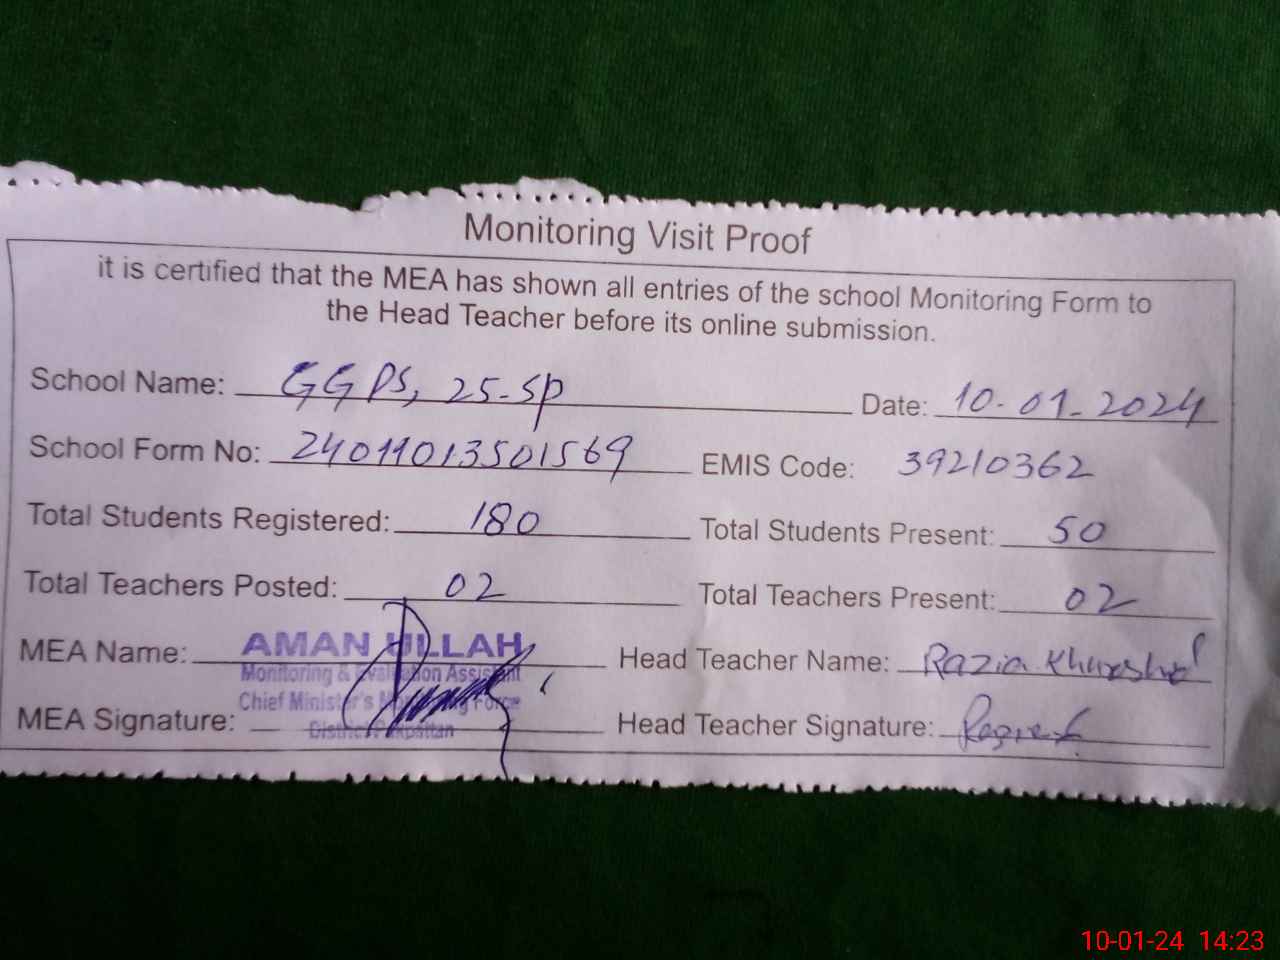 Monitoring Visit Proof
it is certified that the MEA has shown all entries of the school Monitoring Form to
the Head Teacher before its online submission.
School Name: GGPS, 25-SP Date: 10-01-2024
School Form No: 24011013501569 EMIS Code: 39210362
Total Students Registered: 180 Total Students Present: 50
Total Teachers Posted: 02 Total Teachers Present: 02
MEA Name: AMAN ULLAH Head Teacher Name: Razia Khurshed
Monitoring & Evaluation Assistant
Chief Minister's Monitoring Force
MEA Signature: District Pakpattan Head Teacher Signature:
10-01-24 14:23